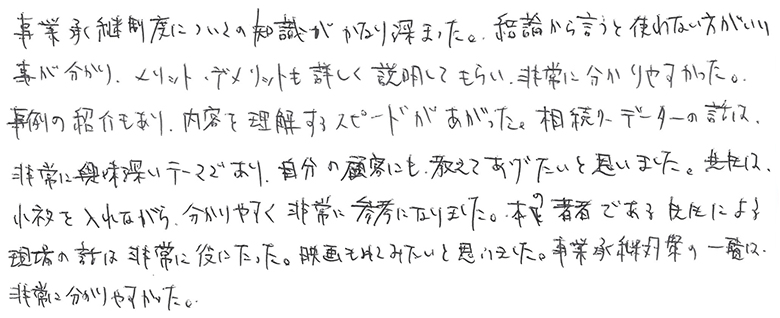 事業承継制度についての知識がかなり深まった。結論から言うと使わない方がいい
事が分かり、メリット・デメリットも詳しく説明してもらい、非常に分かりやすかった。
事例の紹介もあり、内容を理解するスピードがあがった。相続クーデーターの話は、
非常に興味深いテーマであり、自分の顧客にも教えてあげたいと思いました。先生は、
小ネタを入れながら、分かりやすく非常に参考になりました。本の著者である先生による
現場の話は非常に役にたった。映画もみてみたいと思いました。事業承継対策の一覧は、
非常に分かりやすかった。